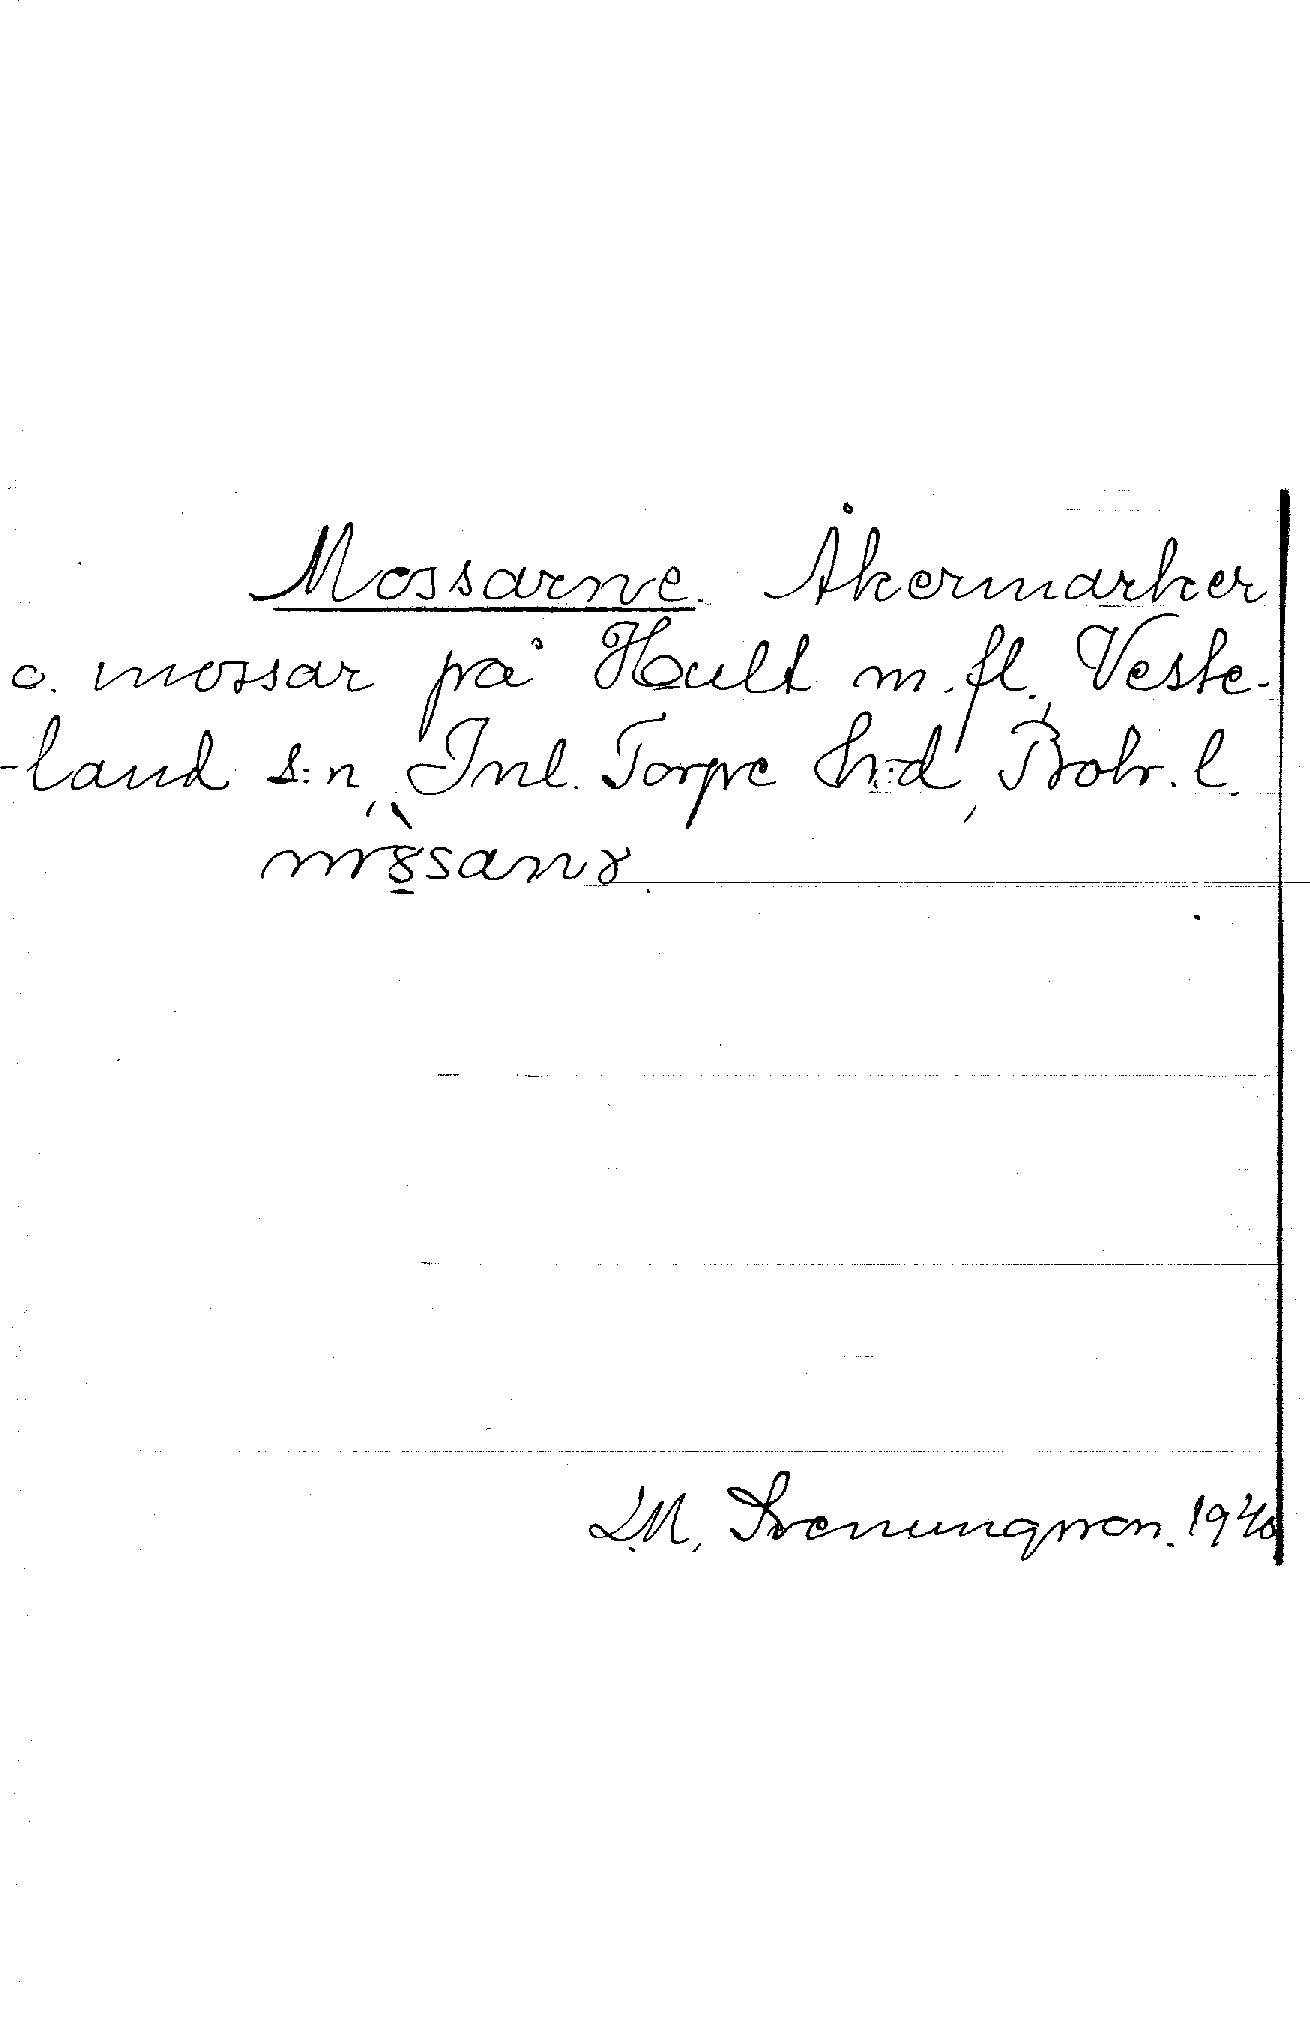 Mossarne. Åkermarker
o. mossar på Hult m. fl., Veste-
-land s:n, Inl. Torpe h:d, Boh. l.
L.M. Svenungsson. 1940